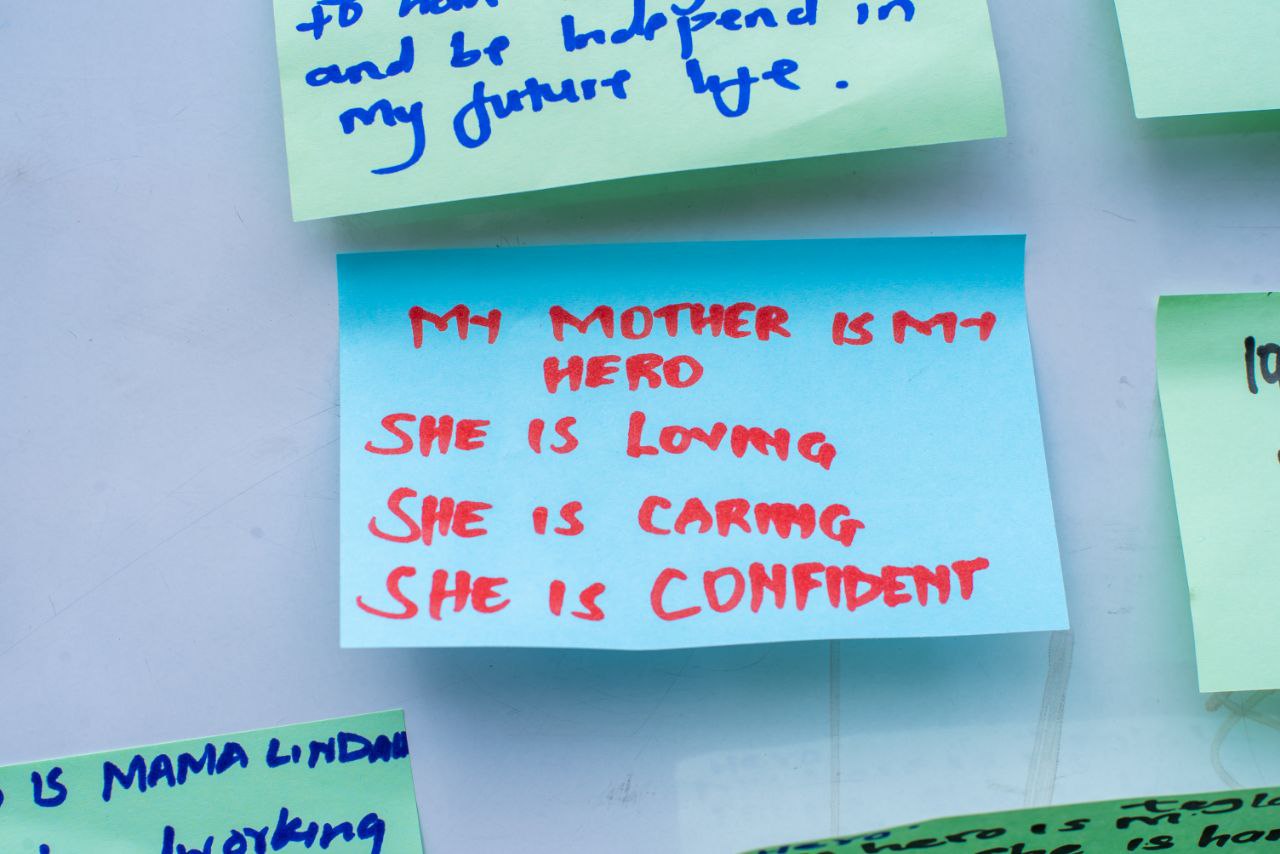 to
and be Independ in
my future lyfe.
MY MOTHER IS MY
HERO
SHE IS LOVING
SHE IS CARING
SHE IS CONFIDENT
IS MAMA
working
hero is
she is